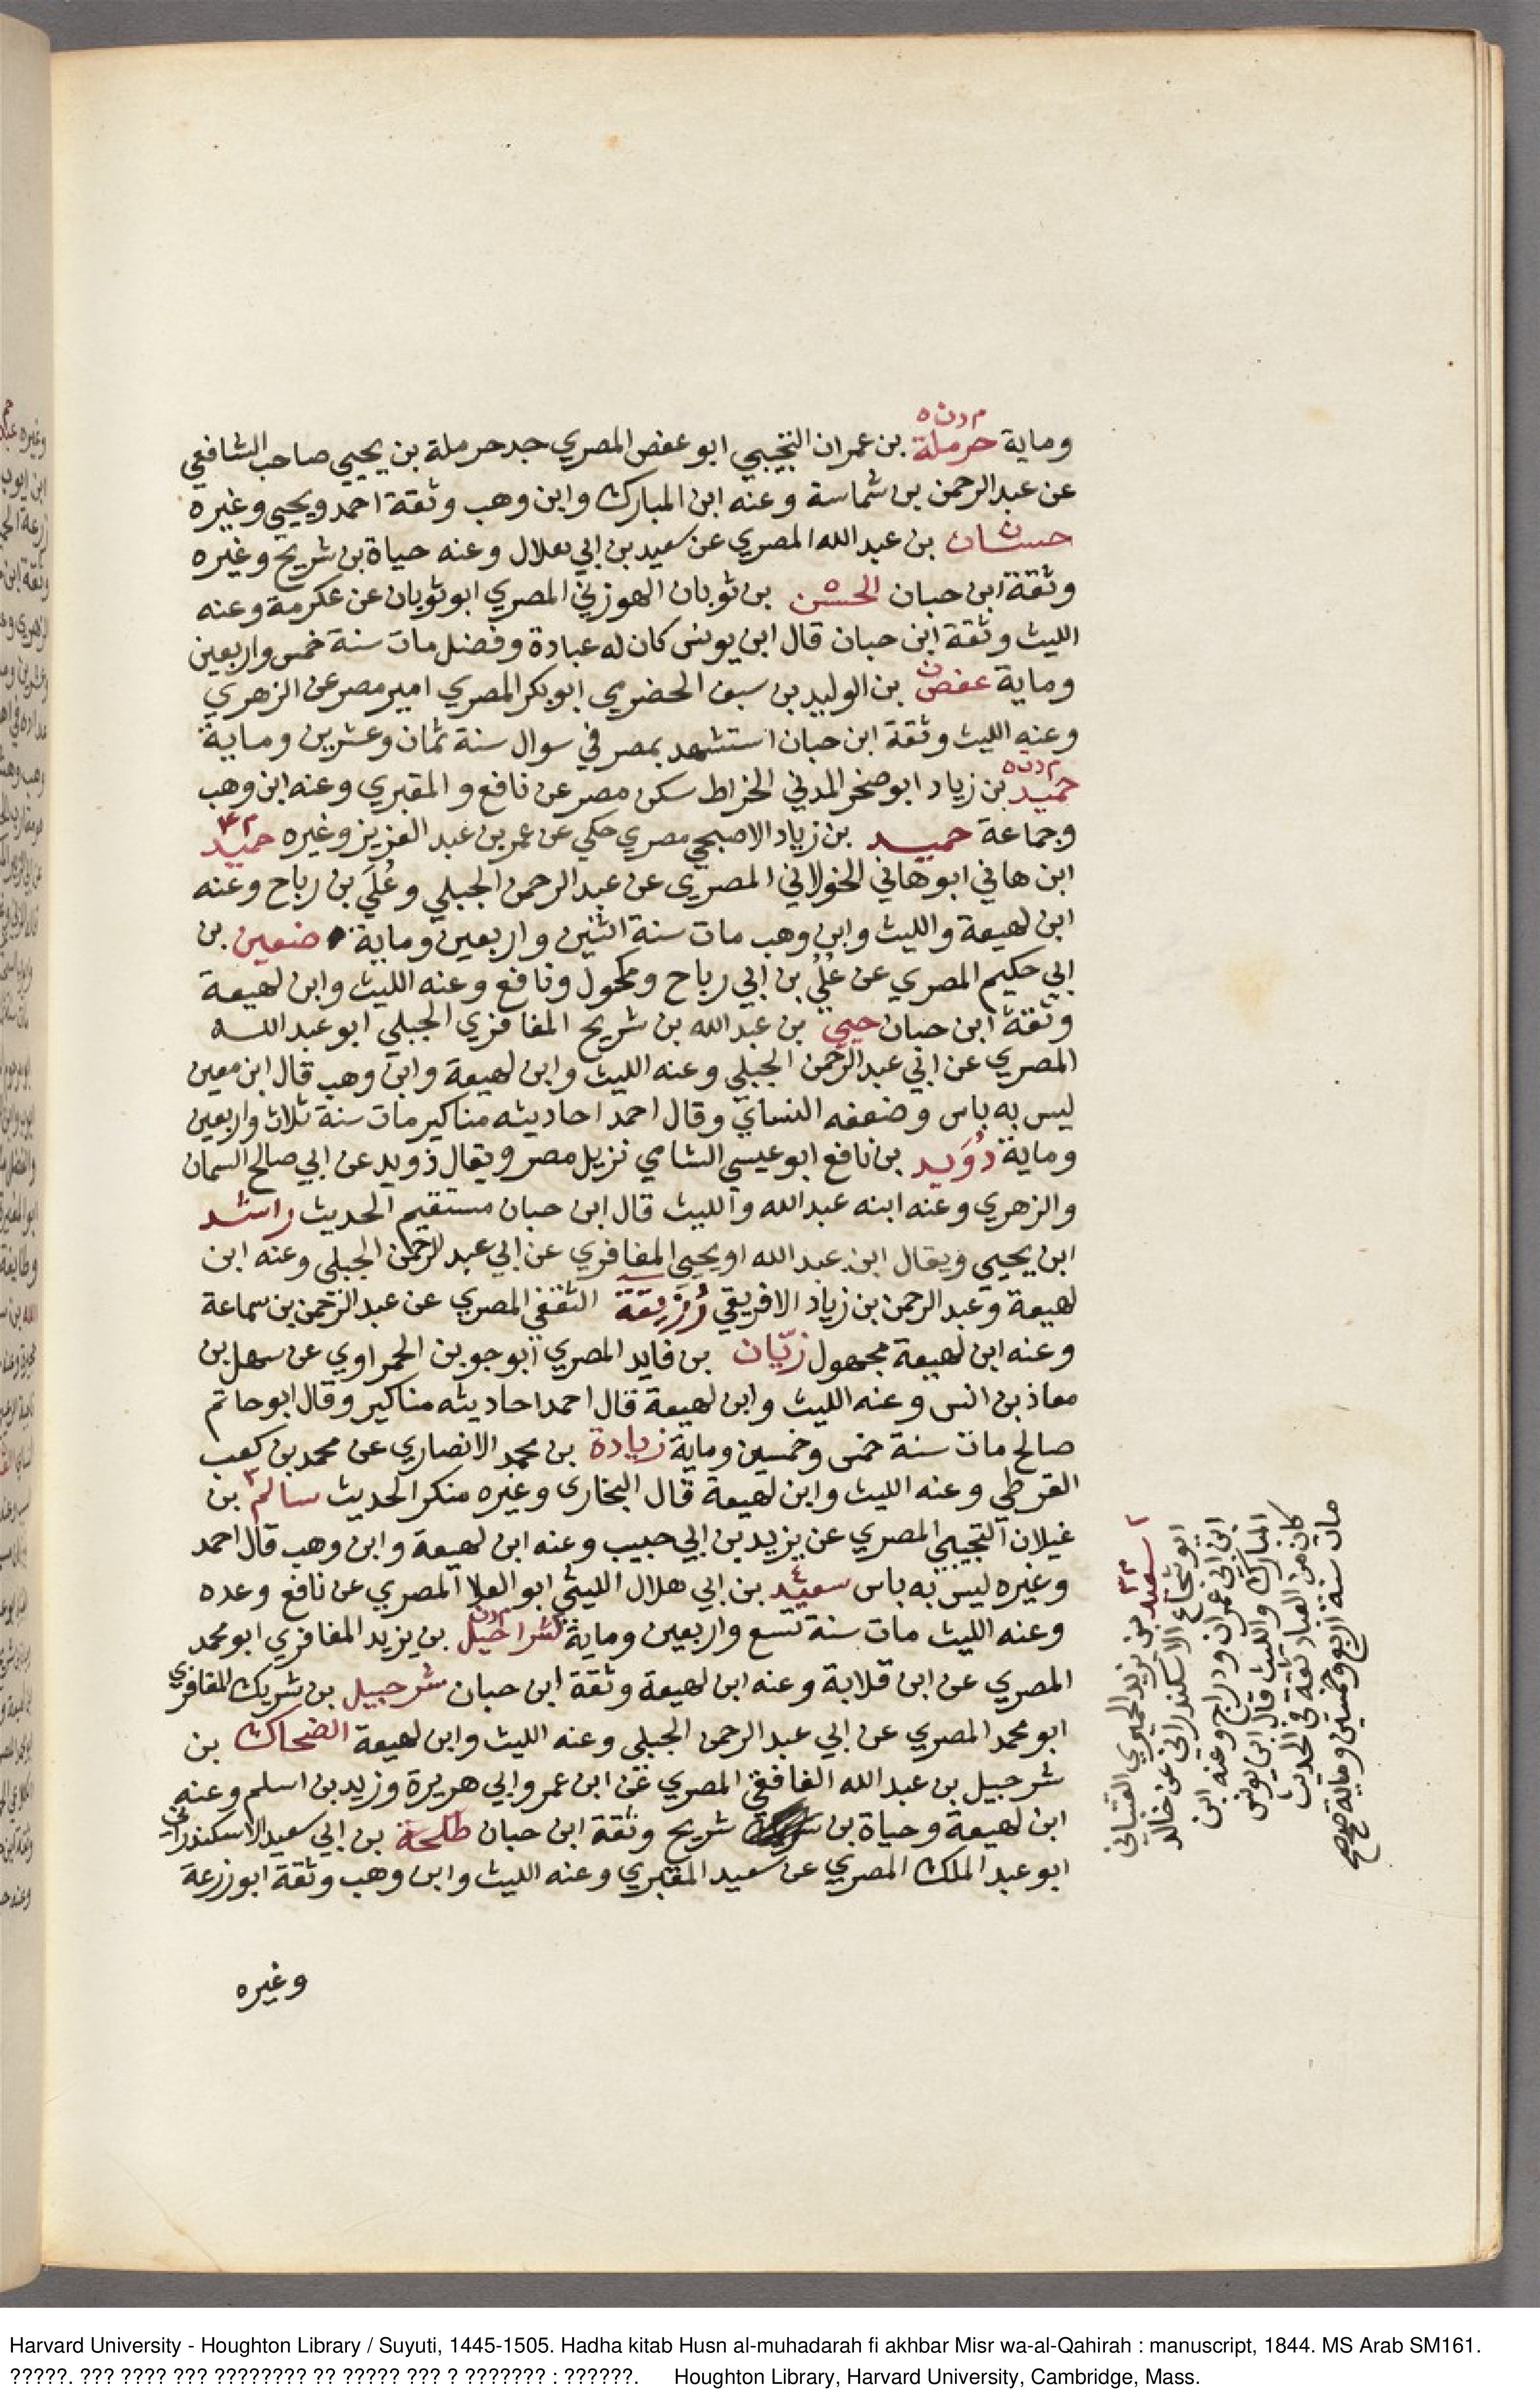 م د ن ه
وماية حرملة بن عمران التجيبي ابو عفص المصري جد حرملة بن يحيي صاحب الشافعي
عن عبد الرحمن بن شماسة وعنه ابن المبارك وابن وهب وثقة احمد ويحيي وغيره
حسان بن عبد الله المصري عن سعيد بن ابي هلال وعنه حياة بن شريح وغيره
وثقة ابن حبان الحسن بن ثوبان الهوزني المصري ابو ثوبان عن عكرمة وعنه
الليث وثقة ابن حبان قال ابن يونس كان له عبادة وفضل مات سنة خمس واربعين
وماية عفص بن الوليد بن سيف الحضرمي ابو بكر المصري امير مصر عن الزهري
وعنه الليث وثقة ابن حبان استشهد بمصر في سوال سنة ثمان وعشرين وماية
حميد بن زياد ابو صخر المدني الخراط سكن مصر عن نافع والمقبري وعنه ابن وهب
وجماعة حميد بن زياد الاصبحي مصري حكي عن عمر بن عبد العزيز وغيره حميد
ابن هاني ابو هاني الخولاني المصري عن عبد الرحمن الجبلي وعُلَي بن رباح وعنه
ابن لهيعة والليث وابن وهب مات سنة اثنين واربعين وماية ضنعين بن
ابي حكيم المصري عن عُلَي بن ابي رباح ومكحول ونافع وعنه الليث وابن لهيعة
وثقة ابن حبان حيي بن عبد الله بن شريح المفافري الجبلي ابو عبد الله
المصري عن ابي عبد الرحمن الجبلي وعنه الليث وابن لهيعة وابن وهب قال ابن معين
ليس به باس وضعفه النساي وقال احمد احاديثه مناكير مات سنة ثلاث واربعين
وماية دُوَيد بن نافع ابو عيسي الشامي نزيل مصر ويقال ذويد عن ابي صالح السمان
والزهري وعنه ابنه عبد الله والليث قال ابن حبان مستقيم الحديث راشد
ابن يحيي ويقال ابن عبد الله او يحيي المفافري عن ابي عبد الرحمن الجبلي وعنه ابن
لهيعة وعبد الرحمن بن زياد الافريقي رُزْيقة الثقفي المصري عن عبد الرحمن بن سماعة
وعنه ابن لهيعة مجهول زبّان بن فايد المصري ابو جوين الحمراوي عن سهل بن
معاذ بن انس وعنه الليث وابن لهيعة قال احمد احاديثه مناكير وقال ابو حاتم
صالح مات سنة خمس وخمسين وماية زيادة بن محمد الانصاري عن محمد بن كعب
القرظي وعنه الليث وابن لهيعة قال البخاري وغيره منكر الحديث سالم بن
غيلان التجيبي المصري عن يزيد بن ابي حبيب وعنه ابن لهيعة وابن وهب قال احمد
وغيره ليس به باس سعيد بن ابي هلال الليثي ابو العلا المصري عن نافع وعده
وعنه الليث مات سنة تسع واربعين وماية شراحيل بن يزيد المفافري ابو محمد
المصري عن ابن قلابة وعنه ابن لهيعة وثقة ابن حبان شرحبيل بن شريك المفافري
ابو محمد المصري عن ابي عبد الرحمن الجبلي وعنه الليث وابن لهيعة الضحاك بن
شرحبيل بن عبد الله الغافقي المصري عن ابن عمر وابي هريرة وزيد بن اسلم وعنه
ابن لهيعة وحياة بن شريح وثقة ابن حبان طلحة بن ابي سعيد الاسكندراني
ابو عبد الملك المصري عن سعيد المقبري وعنه الليث وابن وهب وثقة ابو زرعة
وغيره
سعيد بن يزيد الحميري القتباني
ابو شجاع الاسكندراني عن خالد
ابن ابي عمران ودراج وعنه ابن
المبارك والليث قال ابن يونس
كان من العباد ثقة في الحديث
مات سنة اربع وخمسين وماية صح صح
Harvard University - Houghton Library / Suyuti, 1445-1505. Hadha kitab Husn al-muhadarah fi akhbar Misr wa-al-Qahirah : manuscript, 1844. MS Arab SM161.
?????. ??? ???? ??? ???????? ?? ????? ??? ? ??????? : ??????. Houghton Library, Harvard University, Cambridge, Mass.